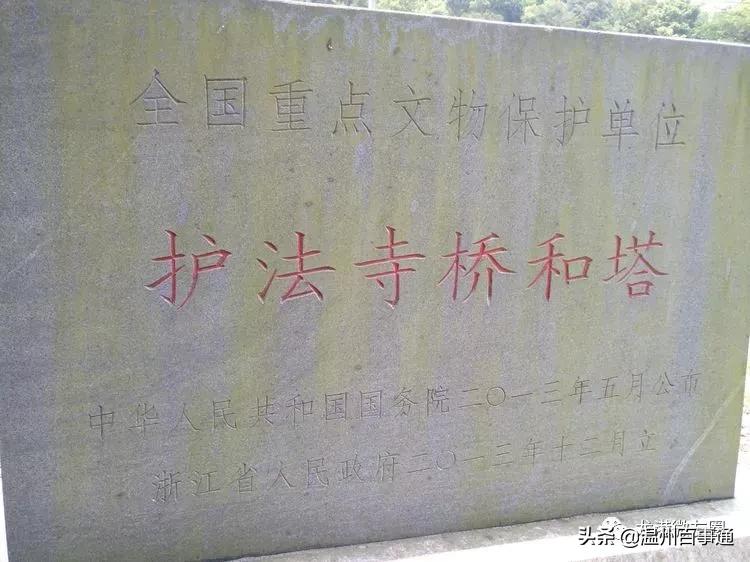 全国重点文物保护单位
护法寺桥和塔
中华人民共和国国务院二〇一三年五月公布
浙江省人民政府二〇一三年十二月立
龙港微友圈
头条@温州百事通